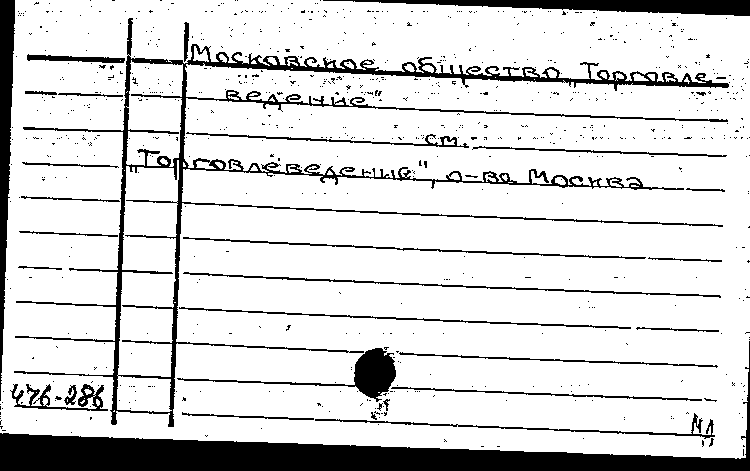 Московское общество „Торговле-
ведение"
см.
„Торговлеведение", о-во Москва
476-286